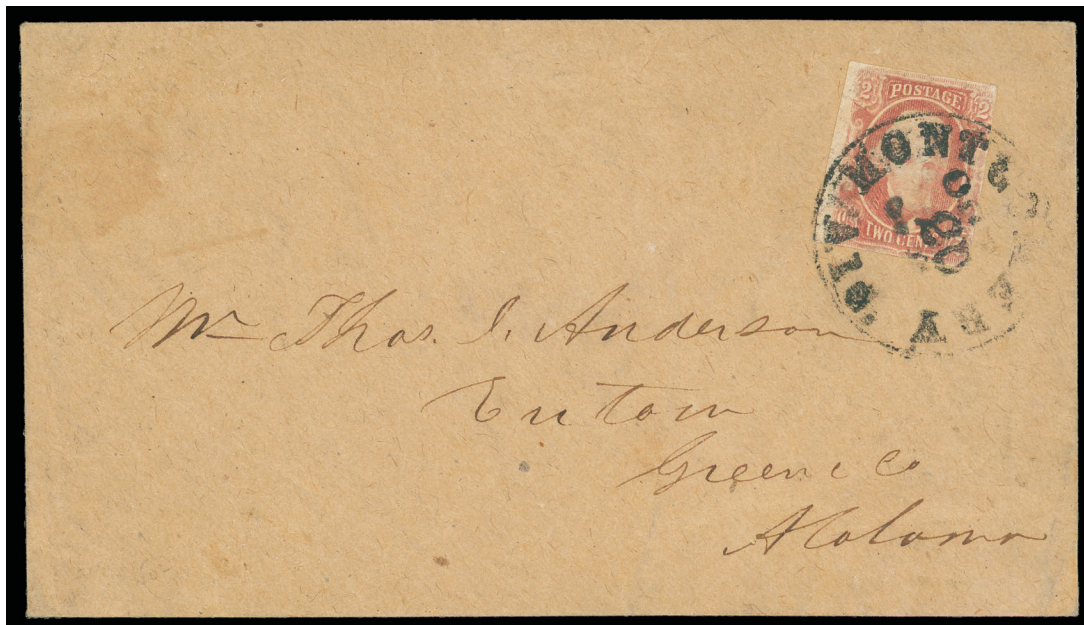 2 POSTAGE 2
TWO CENTS
MONTGOMERY ALA.
20
Mr Thos. J. Anderson
Eutaw
Greene Co
Alabama